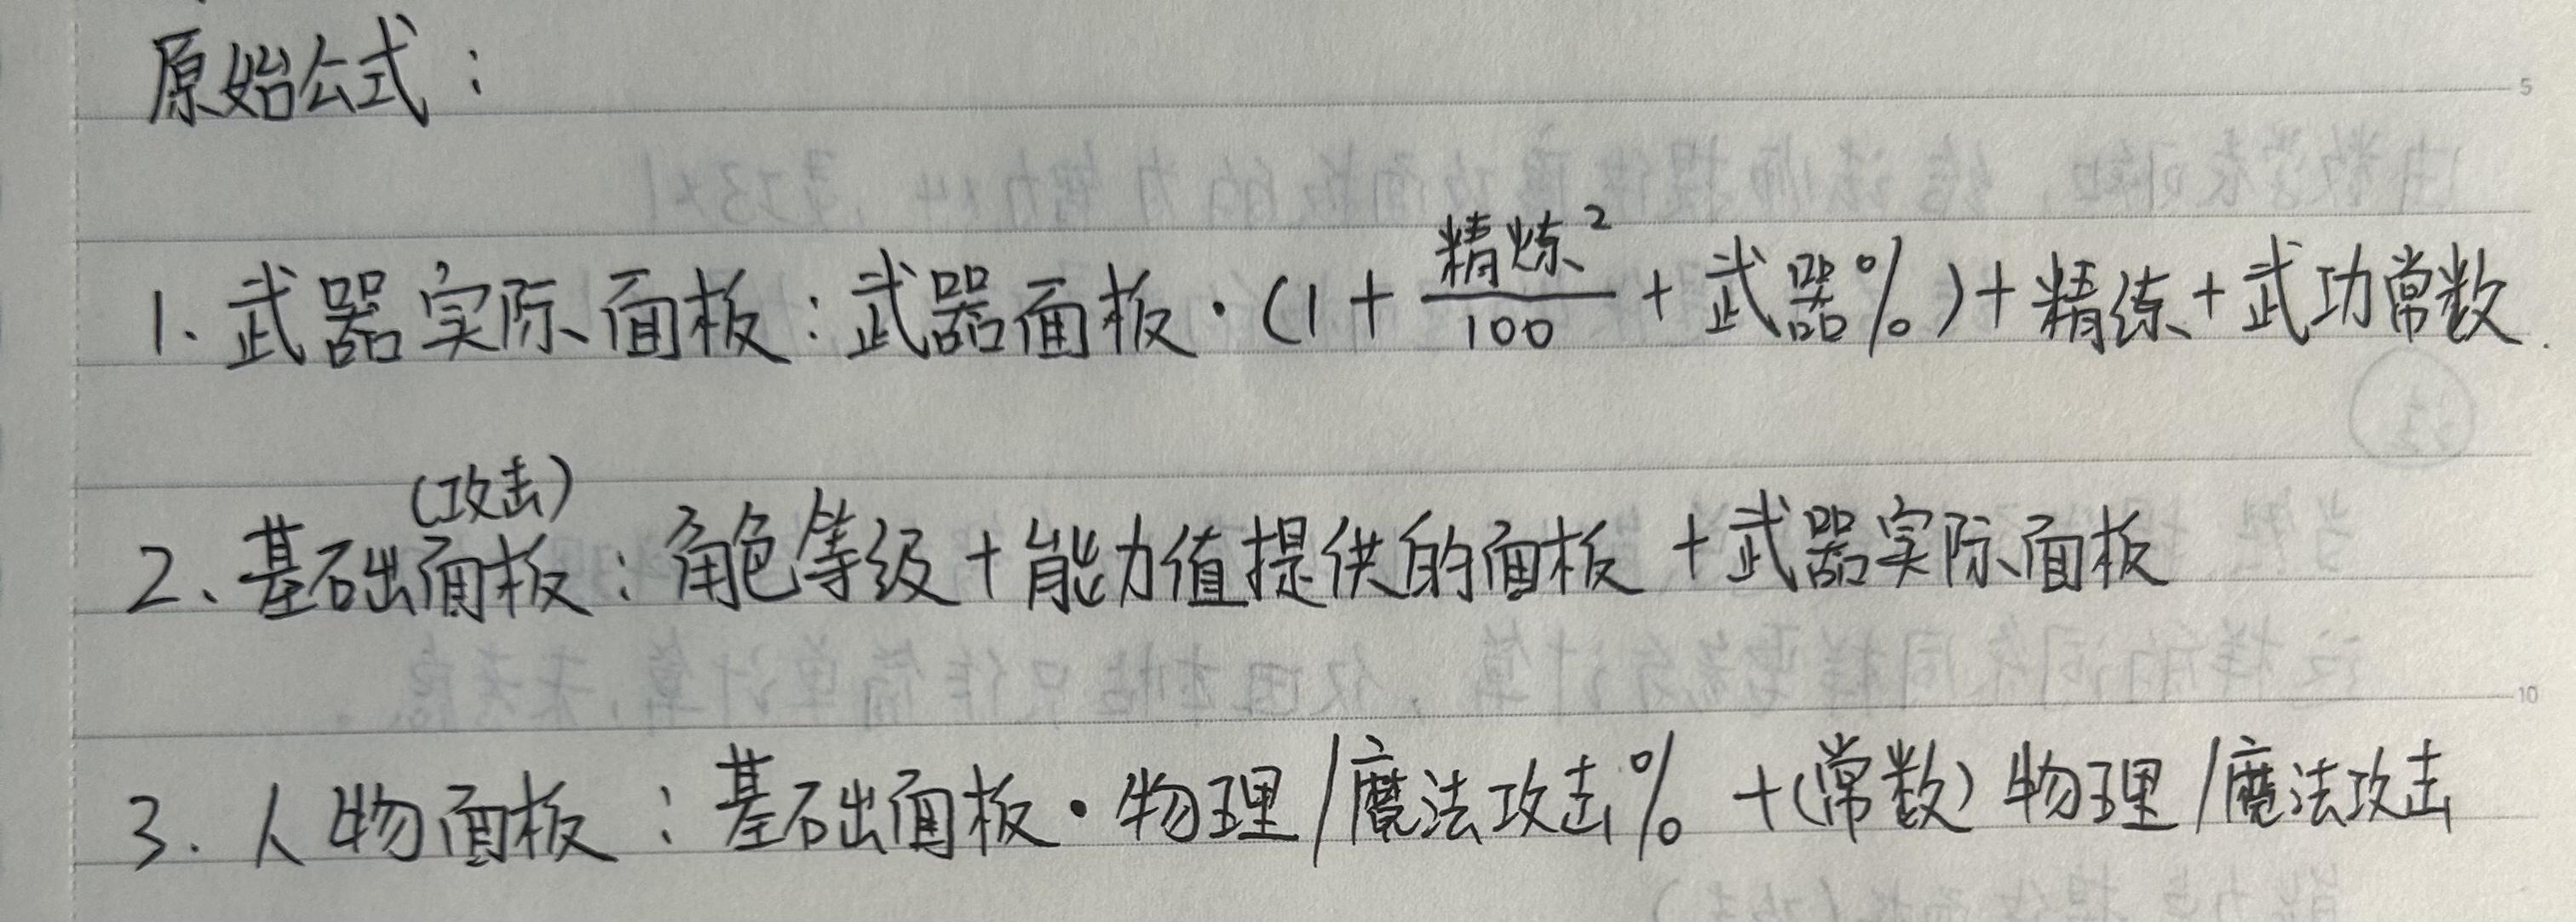 原始公式：
1. 武器实际面板：武器面板·(1 + 精炼²/100 + 武器%) + 精练 + 武功常数.
2、基础(攻击)面板：角色等级 + 能力值提供的面板 + 武器实际面板
3. 人物面板：基础面板·物理/魔法攻击% +(常数) 物理/魔法攻击
5
10